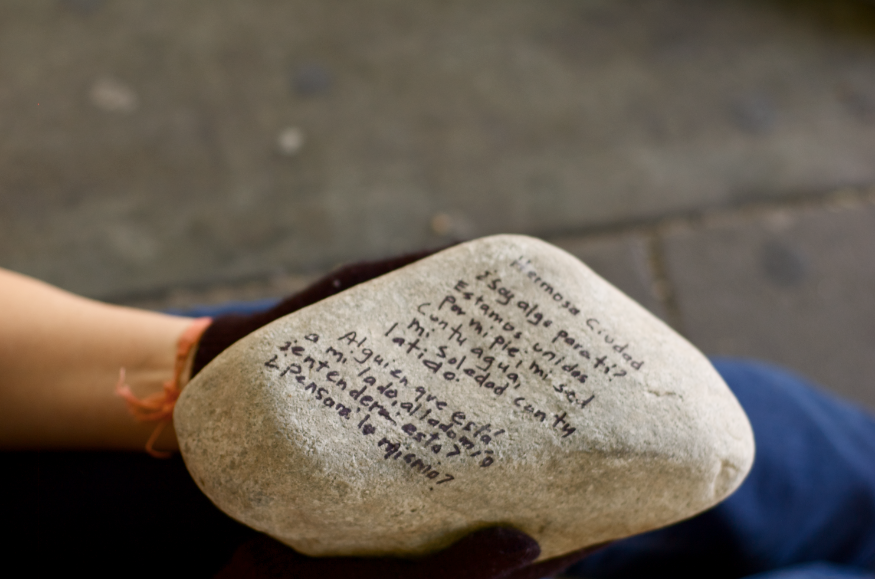 Hermosa Ciudad
¿Soy algo para ti?
Estamos unidos
por mi pie, mi sed
con tu agua,
mi soledad con tu
latido.
Alguien que está
a mi lado, al lado mío
¿entenderá esto?
¿pensará lo mismo?